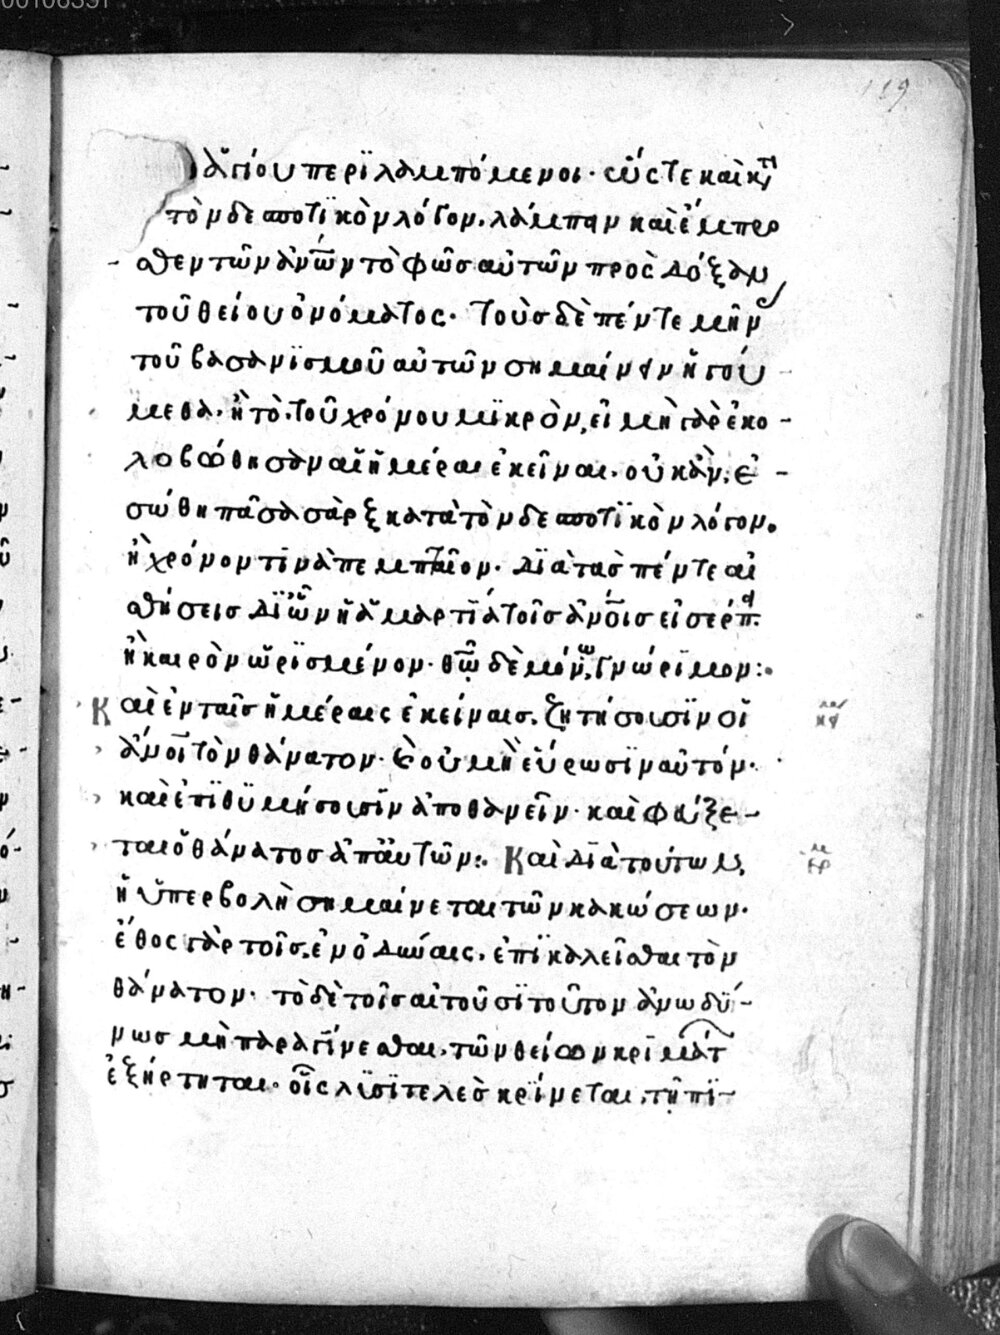 00108391
119
ἁγίου περϊλαμπόμενοι· ὥστε καὶ κτ
τὸν δεσποτϊκὸν λόγον, λάμπειν καὶ ἔμπρο
σθεν τῶν ἀνων τὸ φῶσ αὐτῶν πρὸς δόξαν
τοῦ θείου ὀνόματος· Τοὺσ δὲ πέντε μῆν
τοῦ βασανϊσμοῦ αὐτῶν σημαίνειν ἡγού
μεθα· ἢ τὸ τοῦ χρόνου μϊκρὸν, εἰ μὴ γὰρ ἐκο-
λοβώθησαν αἱ ἡμέραι ἐκεῖναι· οὐκ ἂν, ἐ-
σώθη πᾶσα σὰρξ κατὰ τὸν δεσποτϊκὸν λόγον.
ἢ χρόνον τϊνὰ πεμπταῖον· Δϊὰ τασ πέντε αἰ
σθήσεισ δϊ ὧν ἡ ἁμαρτϊα τοῖσ ἀνοισ εἰσέρπ
ἢ καιρὸν ὡρϊσμένον· θω δὲ μόνω, γνώρϊμον:·
Καὶ ἐν ταῖσ ἡμέραις ἐκείναισ, ζητήσουσϊν οἱ
ἀνοι τὸν θάνατον· καὶ οὐ μὴ εὕρωσϊν αὐτόν·
καὶ ἐπϊθϋμήσουσϊν ἀποθανεῖν· καὶ φεύξε-
ται ὁ θάνατοσ ἀπ αὐτῶν:· Καὶ δϊὰ τούτων,
ἡ ὑπερβολὴ σημαίνεται τῶν κακώσεων·
ἔθος γὰρ τοῖσ, ἐν ὀδύναις, ἐπϊκαλεῖσθαι τὸν
θάνατον· τὸ δὲ τοῖσ αἰτοῦσϊ τοῦτον ἀνωδϋ-
νωσ μὴ παραγίνεσθαι, τῶν θείων κρϊμάτ
ἐξήρτηται· οἷς λϋσϊτελὲσ κρίνεται, τῆ πϊ-